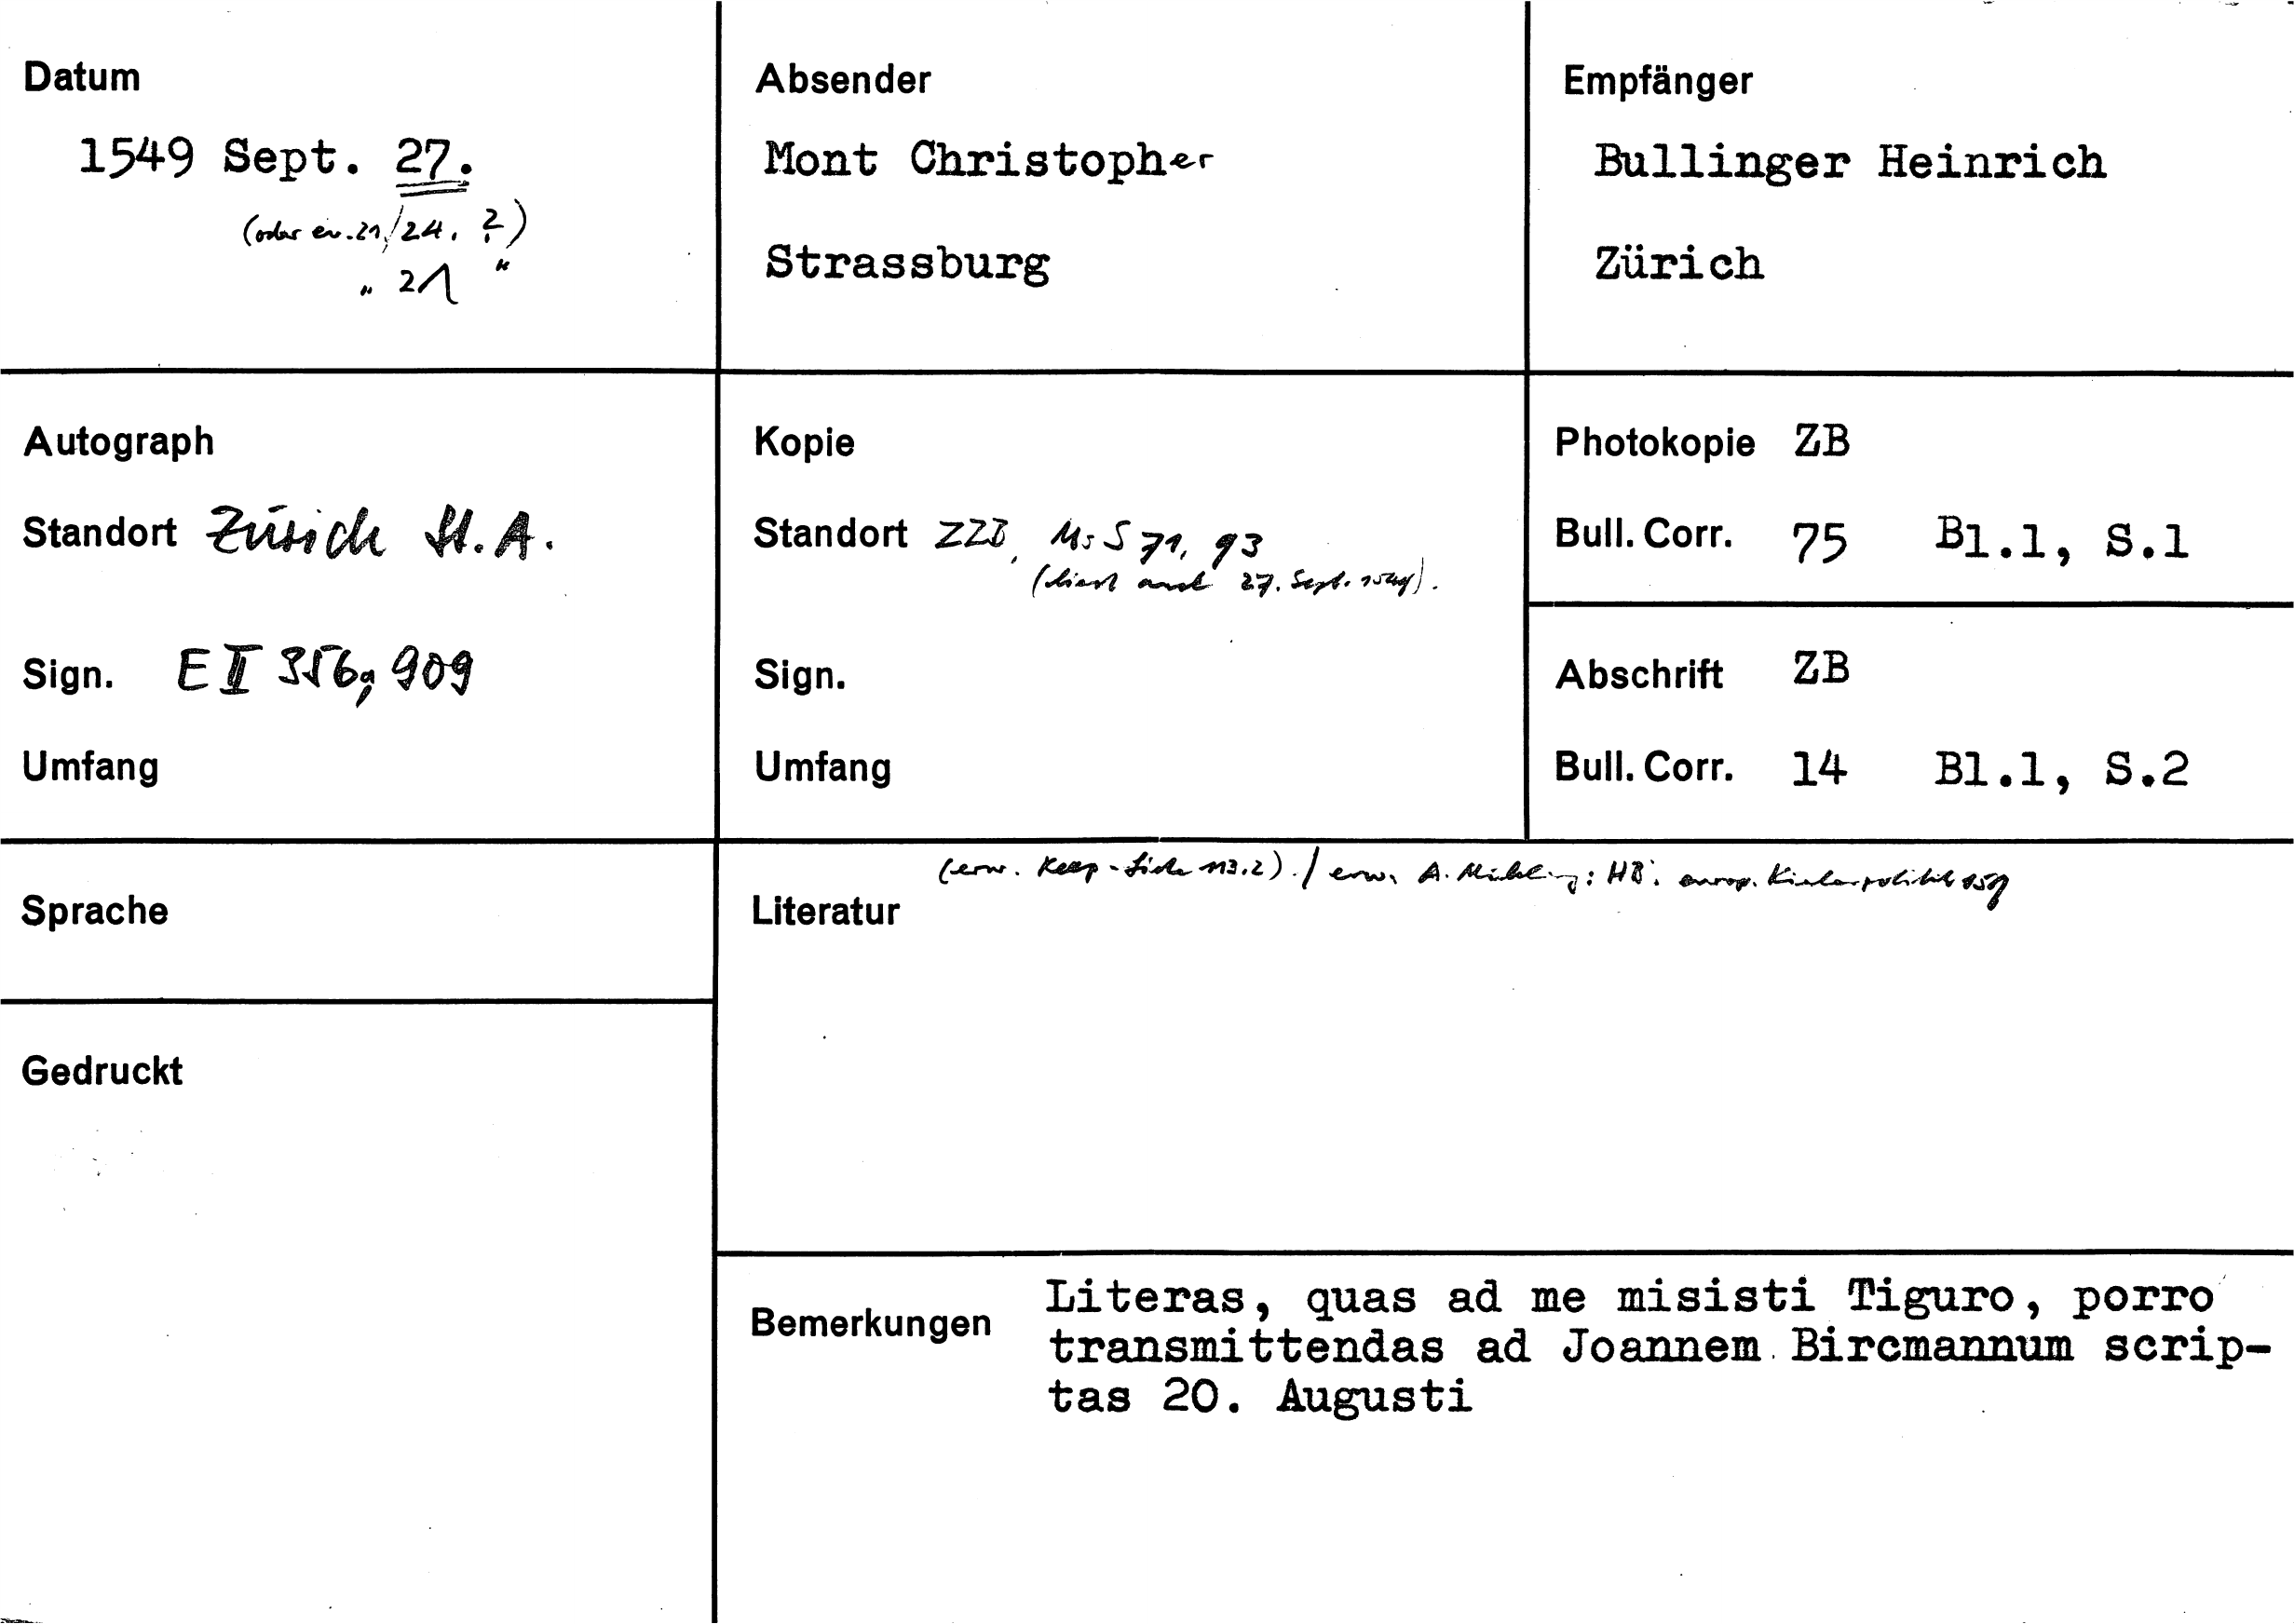 Datum
1549 Sept. 27.
(oder ev. 21./24. ?)
" 21 "
Absender
Mont Christopher
Strassburg
Empfänger
Bullinger Heinrich
Zürich
Autograph
Standort Zürich St. A.
Sign. E II 356, 909
Umfang
Kopie
Standort ZZB, Ms S 71, 93
(liest auch 27. Sept. 1549).
Sign.
Umfang
Photokopie ZB
Bull. Corr. 75 Bl.1, S.1
Abschrift ZB
Bull. Corr. 14 Bl.1, S.2
Sprache
Gedruckt
(erw. 113.2). / erw. A. Mühling: HB: europ. Kirchenpolitik 159
Literatur
Bemerkungen Literas, quas ad me misisti Tiguro, porro
transmittendas ad Joannem Bircmannum scrip-
tas 20. Augusti